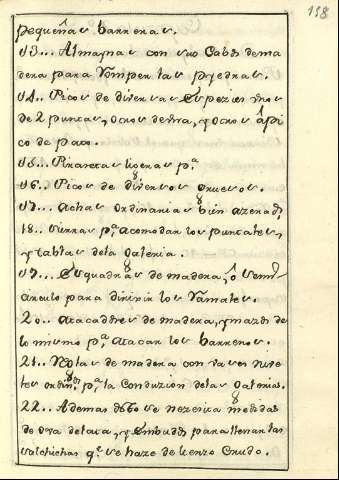 158
pequeñas barrenas.
13... Almaynas con sus Cabos de ma
dera para Romper las piedras.
14.. Picos de diversas Espezies unos
de 2 puntas, otros de una, y otros â pi
co de pato.
15... Piquetas ligeras p.ª
16... Picos de diversos gruesos.
17... achas ordinarias bien azeradas
18.. Sierras p.ª acomodar los puntales,
y tablas dela Galeria.
19... Esquadras de madera, ô Semi
circulo para dirixir los Ramales.
20.. atacadores de madera, y mazos de
lo mismo p.ª atacar los barrenos.
21.. Reglas de madera con sus nive
les ordin.os p.ª la Conduzion delas Galerias.
22.. Ademas desto se nezesita medidas
de oja delata, y Embudos para llenar las
salchichas q.e se haze de lienzo Crudo.